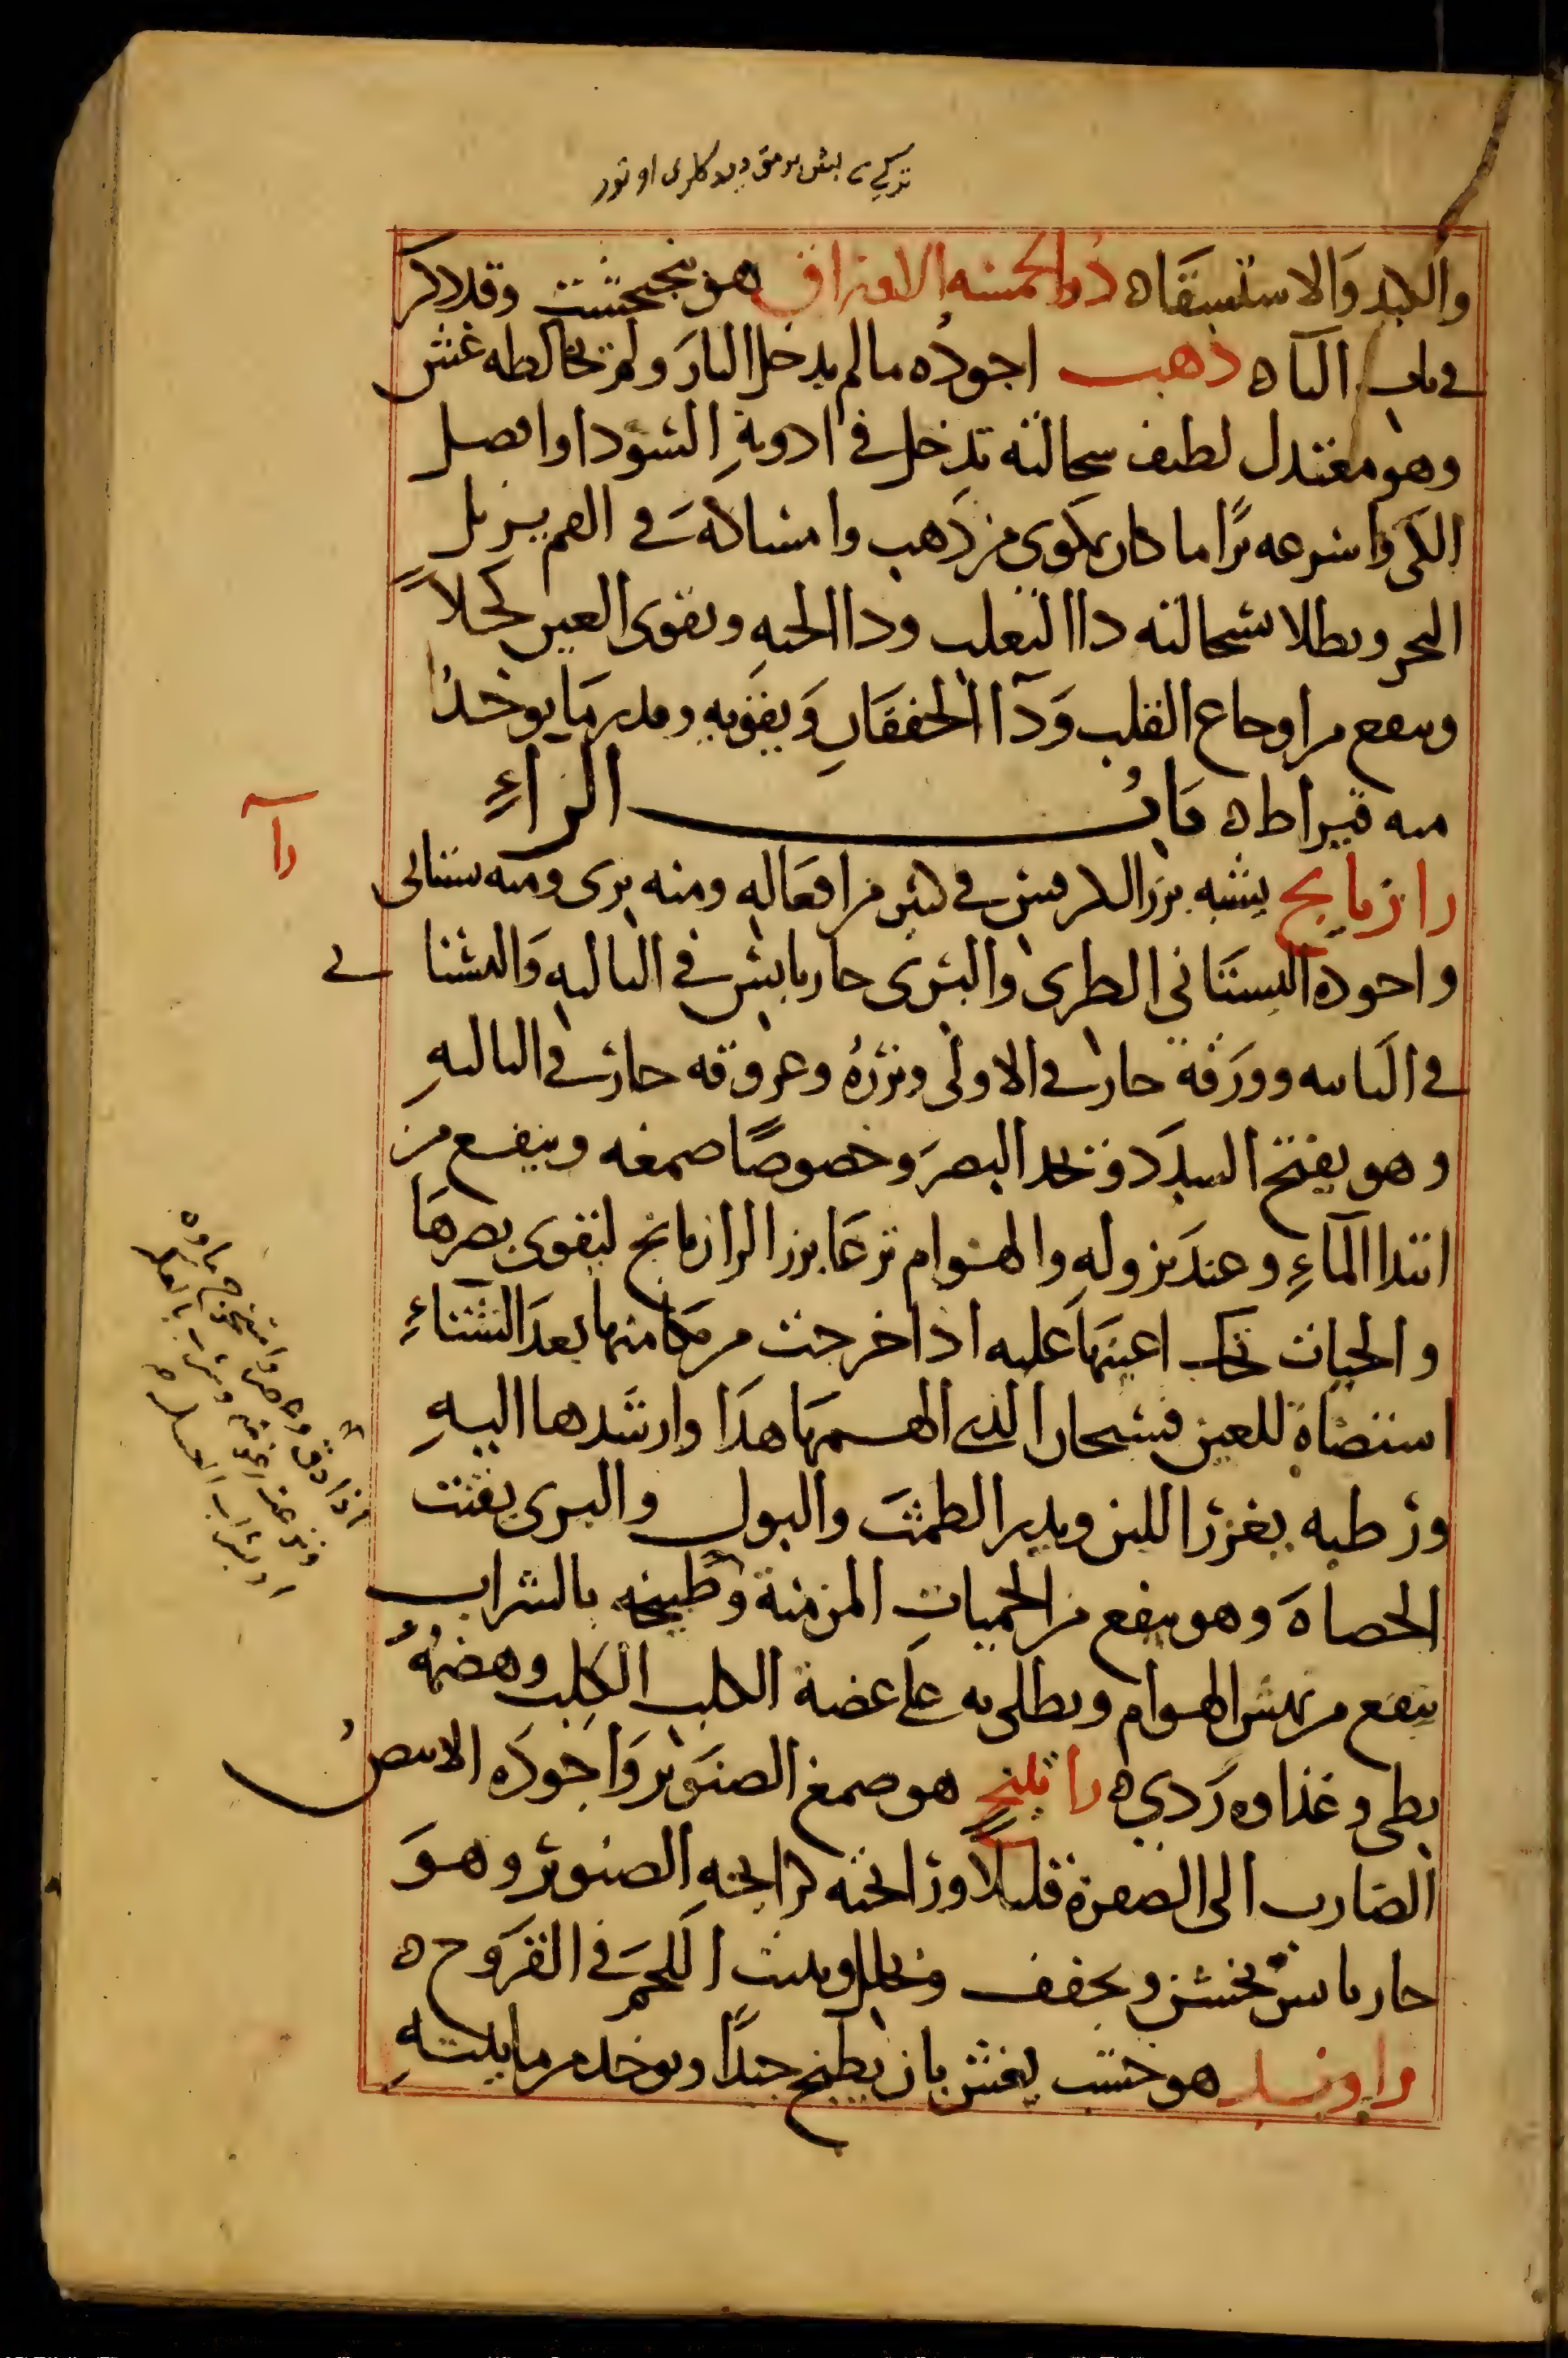 تركي بش برمق ديدكلرى اوتدر
والكبد والاستسقاه ذو الخمسة الاوراق هو بنجنكشت وقد ذكر
في باب الباه ذهب اجوده مالم يدخل النار ولم يخالطه غش
وهو معتدل لطيف سحالته تدخل في ادوية السودا وافضل
الكي واسرعه برًا ما كان بمكوى من ذهب وامساكه في الفم يزيل
البخر ويطلا بسحالته دا الثعلب ودا الحية ويقوى العين كحلاً
وينفع من اوجاع القلب ودا الخفقان ويقويه وقدر ما يوخذ
منه قيراطه باب الراء
را
رازيانج يشبه بزر الكرفس في كثير من افعاله ومنه برى ومنه بستانى
واجوده البستاني الطرى والبرى حار يابس في الثالثة والبستا ني
في الثانيه وورقه حار في الاولى وبزره وعروقه حار في الثالثة
وهو يفتح السدد ويحد البصر وخصوصًا صمغه وينفع من
ابتدا المآء وعند نزوله والهوام ترعا بزر الرازيانج ليقوى بصرها
والحيات تحك اعينها عليه اذا خرجت من مكامنها بعد الشتاء
استضاة للعين فسبحان الذي الهمها هذا وارشدها اليه
ورطبه يغزر اللبن ويدر الطمث والبول والبرى يفتت
الحصاة وهو ينفع من الحميات المزمنة وطبيخه بالشراب
ينفع من نهش الهوام ويطلى به على عضة الكلب الكلب وهضمه
بطى وغذاوه ردي ه راتينج هو صمغ الصنوبر واجوده الابيض
الضارب الى الصفرة قليلا ورائحته كرائحة الصنوبر وهو
حار يابس يخشن ويجفف ويحلل وينبت اللحم في القروح ه
راوند هو خشب يغش بان يطبخ جيدًا ويوخذ من ماييته